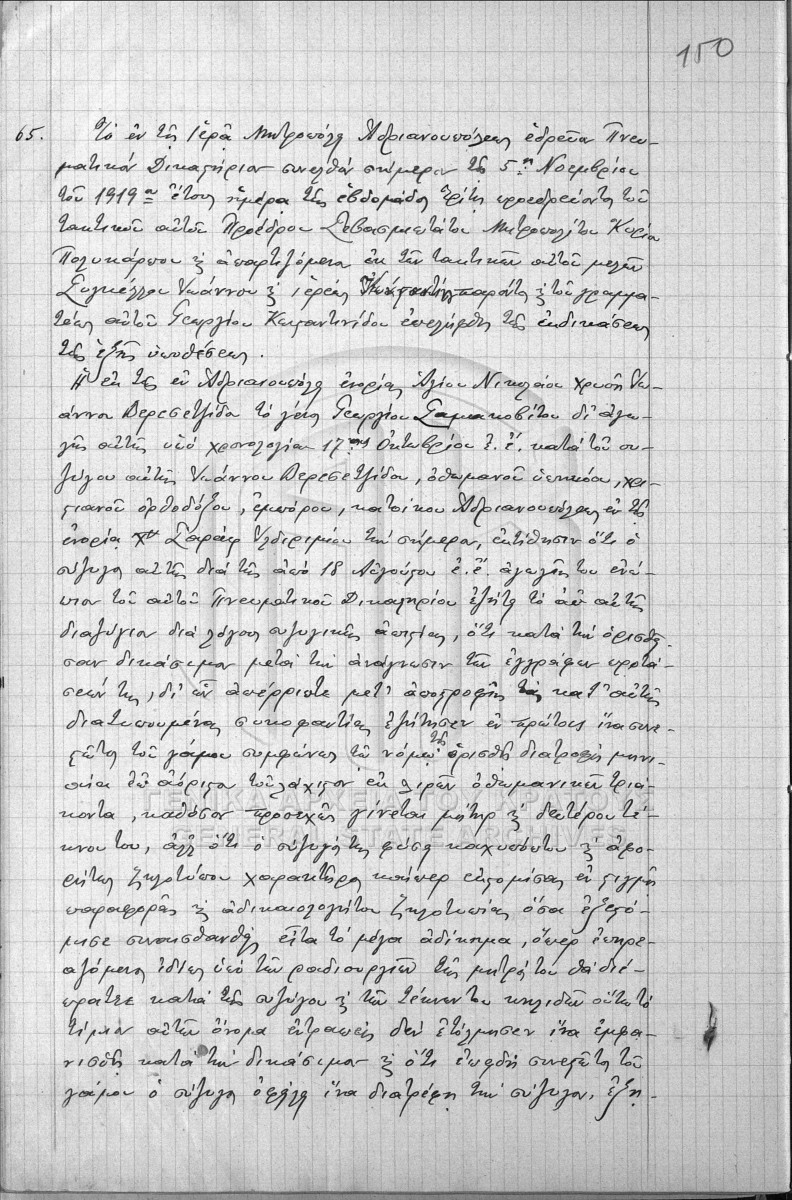 150
65. Τὸ ἐν τῇ Ἱερᾷ Μητροπόλει Ἀδριανουπόλεως ἑδρεῦον Πνευ-
ματικὸν Δικαστήριον συνελθὸν σήμερον τῆς 5ῃ Νοεμβρίου
τοῦ 1919ου ἔτους ἡμέρᾳ τῆς ἑβδομάδος Τρίτῃ προεδρεύοντος τοῦ
τακτικοῦ αὐτοῦ Προέδρου Σεβασμιωτάτου Μητροπολίτου Κυρίου
Πολυκάρπου καὶ ἀπαρτιζόμενον ἐκ τῶν τακτικῶν αὐτοῦ μελῶν
Συγκέλλου Ἰωάννου καὶ ἱερέως παρόντος καὶ τοῦ γραμμα-
τέως αὐτοῦ Γεωργίου Κωνσταντινίδου ἐπελήφθη τῆς ἐκδικάσεως
τῆς ἑξῆς ὑποθέσεως.
Ἡ ἐκ τῆς ἐν Ἀδριανουπόλει ἐνορίας Ἁγίου Νικολάου Χρυσῆ Ἰω-
άννου Βερεσετζίδου τὸ γένος Γεωργίου Σαμακοβίτου δι' ἀγω-
γῆς αὐτῆς ὑπὸ χρονολογίαν 17ης Ὀκτωβρίου ἐ. ἔ. κατὰ τοῦ συ-
ζύγου αὐτῆς Ἰωάννου Βερεσετζίδου, ὀθωμανοῦ ὑπηκόου, χρι-
στιανοῦ ὀρθοδόξου, ἐμπόρου, κατοίκου Ἀδριανουπόλεως ἐν τῇ
ἐνορίᾳ Σαράφ Ἰλδιρίμιου τὴν σήμερον, ἐκτίθησιν ὅτι ὁ
σύζυγος αὐτῆς διὰ τῆς ἀπὸ 18 Αὐγούστου ἐ. ἔ. ἀγωγῆς του ἐνώ-
πιον τοῦ αὐτοῦ Πνευματικοῦ Δικαστηρίου ἐζήτει τὸ ἀπ' αὐτῆς
διαζύγιον διὰ λόγους συζυγικῆς ἀπιστίας, ὅτι κατὰ τὴν ὁρισθεῖ-
σαν δικάσιμον μετὰ τὴν ἀνάγνωσιν τῶν ἐγγράφων προτά-
σεών της, δι' ὧν ἀπέρριπτε μετ' ἀποστροφῆς τὰς κατ' αὐτῆς
διατυπουμένας συκοφαντίας ἐζήτησεν ἐν πρώτοις ἵνα συνε-
στῶτος τοῦ γάμου συμφώνως τῷ νόμῳ τῆς ὁρισθῇ διατροφὴ μηνι-
αία ἐπ' ἀόριστον τοὐλάχιστον ἐκ λιρῶν ὀθωμανικῶν τριά-
κοντα, καθόσον προσεχῶς γίνεται μήτηρ καὶ δευτέρου τέ-
κνου του, ἀλλ' ὅτι ὁ σύζυγός της φύσει καχυπόπτου καὶ ἀφο-
ρήτως ζηλοτύπου χαρακτῆρος καίπερ εὐστομίσας ἐν στιγμῇ
παραφορᾶς καὶ ἀδικαιολογήτου ζηλοτυπίας ὅσα ἐξεστό-
μισε συναισθανθεὶς εἶτα τὸ μέγα ἀδίκημα, ὅπερ ἐπηρε-
αζόμενος ἰδίως ὑπὸ τῶν ραδιουργιῶν τῆς μητρός του θὰ διέ-
πραττε κατὰ τῆς συζύγου καὶ τῶν τέκνων του κηλιδῶν οὕτω τὸ
τίμιον αὐτῶν ὄνομα ἐντραπεὶς δὲν ἐτόλμησεν ἵνα ἐμφα-
νισθῇ κατὰ τὴν δικάσιμον καὶ ὅτι ἐπειδὴ συνεστῶτος τοῦ
γάμου ὁ σύζυγος ὀφείλει ἵνα διατρέφῃ τὴν σύζυγον, ἐζή-
ΓΕΝΙΚΑ ΑΡΧΕΙΑ ΤΟΥ ΚΡΑΤΟΥΣ
GENERAL STATE ARCHIVES